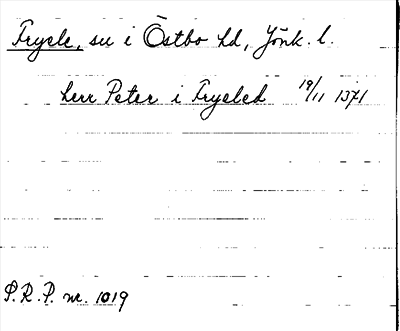 Tryele, su i Östbo hd, Jönk. l.
herr Peter i Tryeled 19/11 1371
P.R.P. nr. 1019